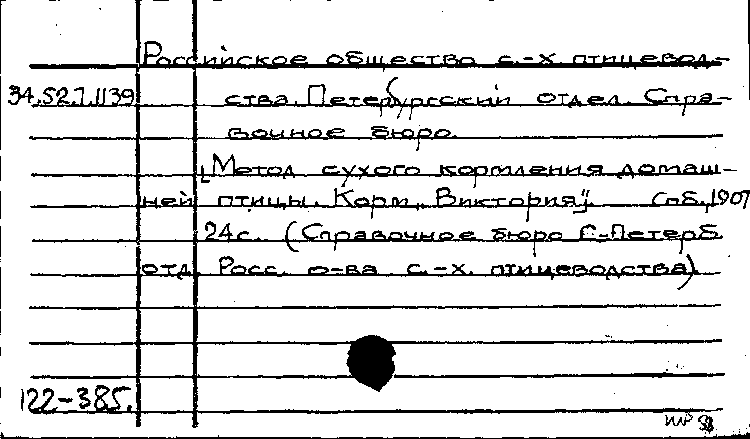 Российское общество с.-х. птицевод-
34.52.7.1139 ства. Петербургский отдел. Спра-
вочное бюро.
[Метод сухого кормления домаш-
ней птицы. Корм „Виктория". Спб., 1907
24с. (Справочное бюро С-Петерб.
отд. Росс. о-ва с.-х. птицеводства)
122-385.